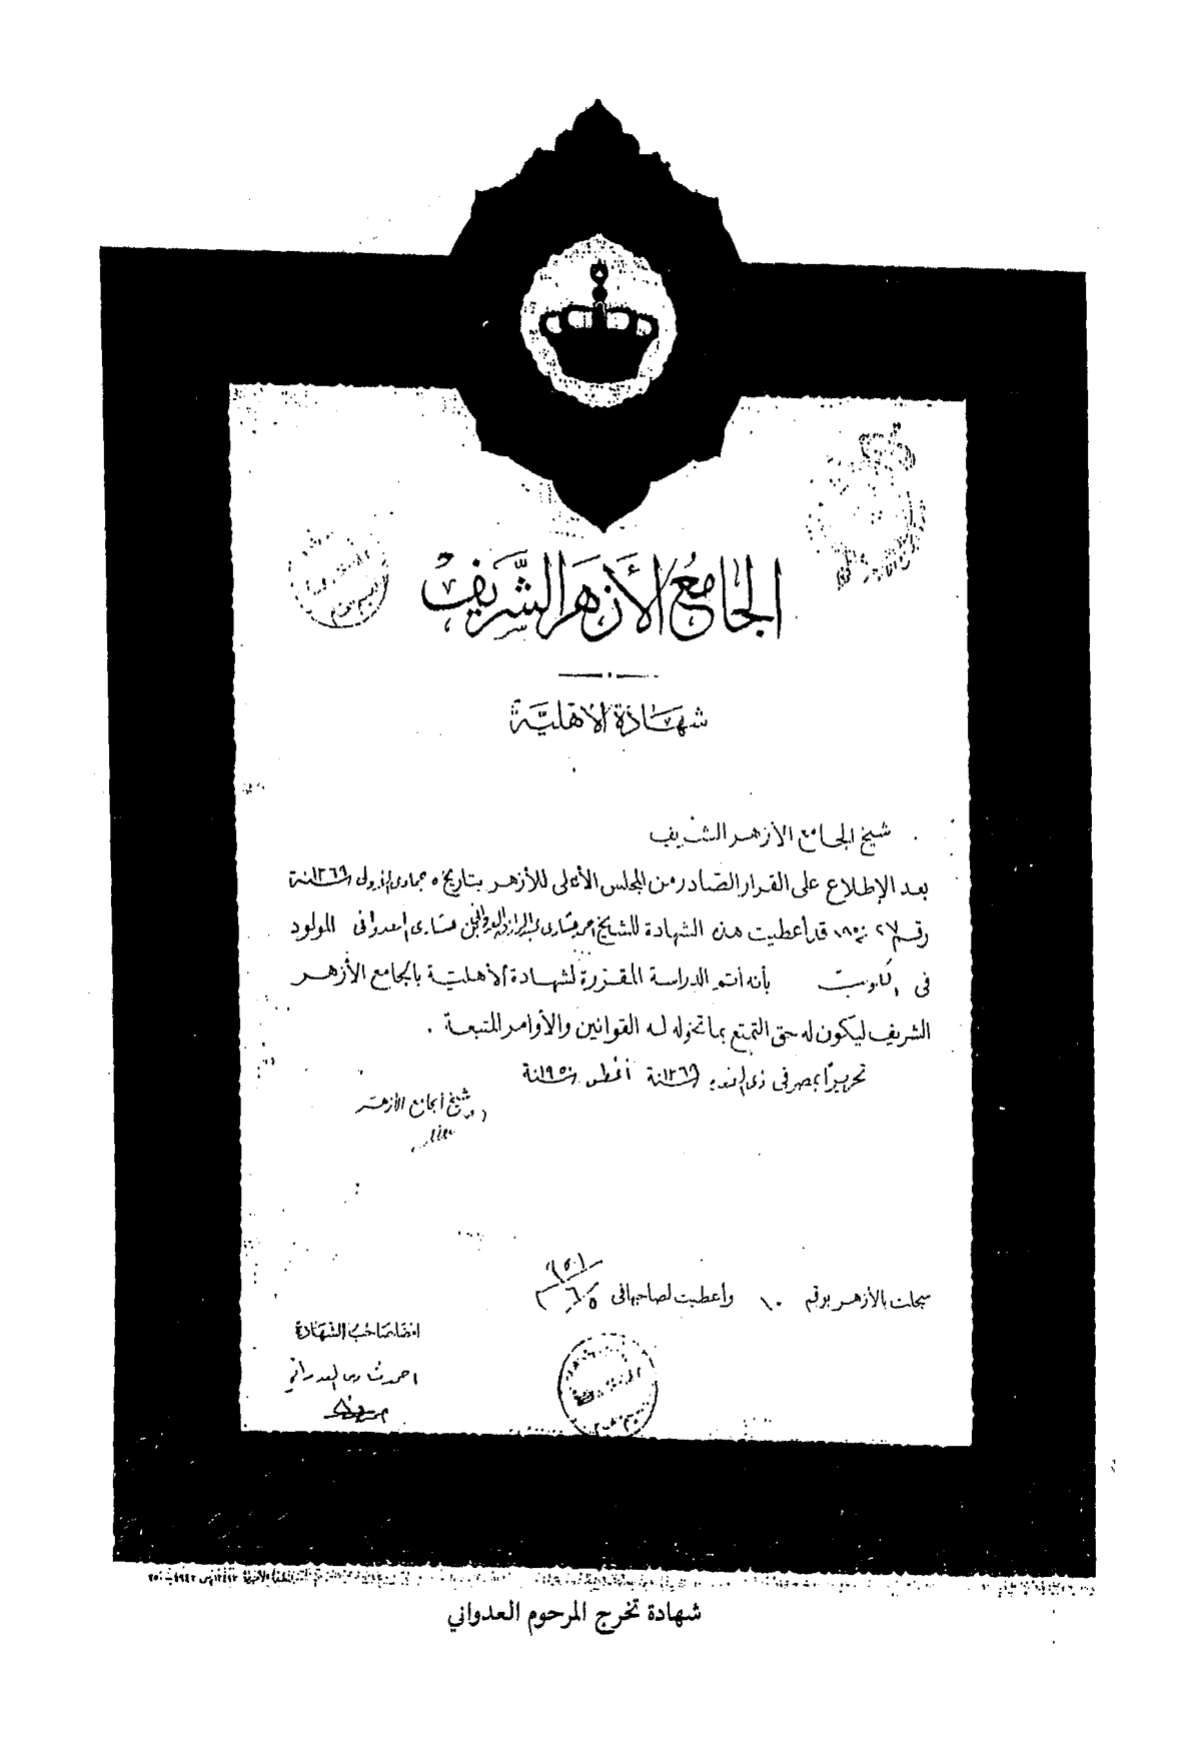 الجامع الأزهر الشريف
شهادة الأهلية
شيخ الجامع الأزهر الشريف
بعد الإطلاع على القرار الصادر من المجلس الأعلى للأزهر بتاريخ ٥ جمادى الأولى سنة ١٣٦٩
رقم ٢٧ سنة ١٩٥٠ قد أعطيت هذه الشهادة للشيخ مشارى العدوانى المولود
فى الكويت بأنه أتم الدراسة المقررة لشهادة الأهلية بالجامع الأزهر
الشريف ليكون له حق التمتع بما تخوله له القوانين والأوامر المتبعة .
تحريرًا بمصر فى ذى القعدة سنة ١٣٦٩ أغسطس سنة ١٩٥٠
شيخ الجامع الأزهر
سجلت بالأزهر برقم ١٠ وأعطيت لصاحبها فى
امضاء صاحب الشهادة
احمد مشارى العدوانى
شهادة تخرج المرحوم العدواني